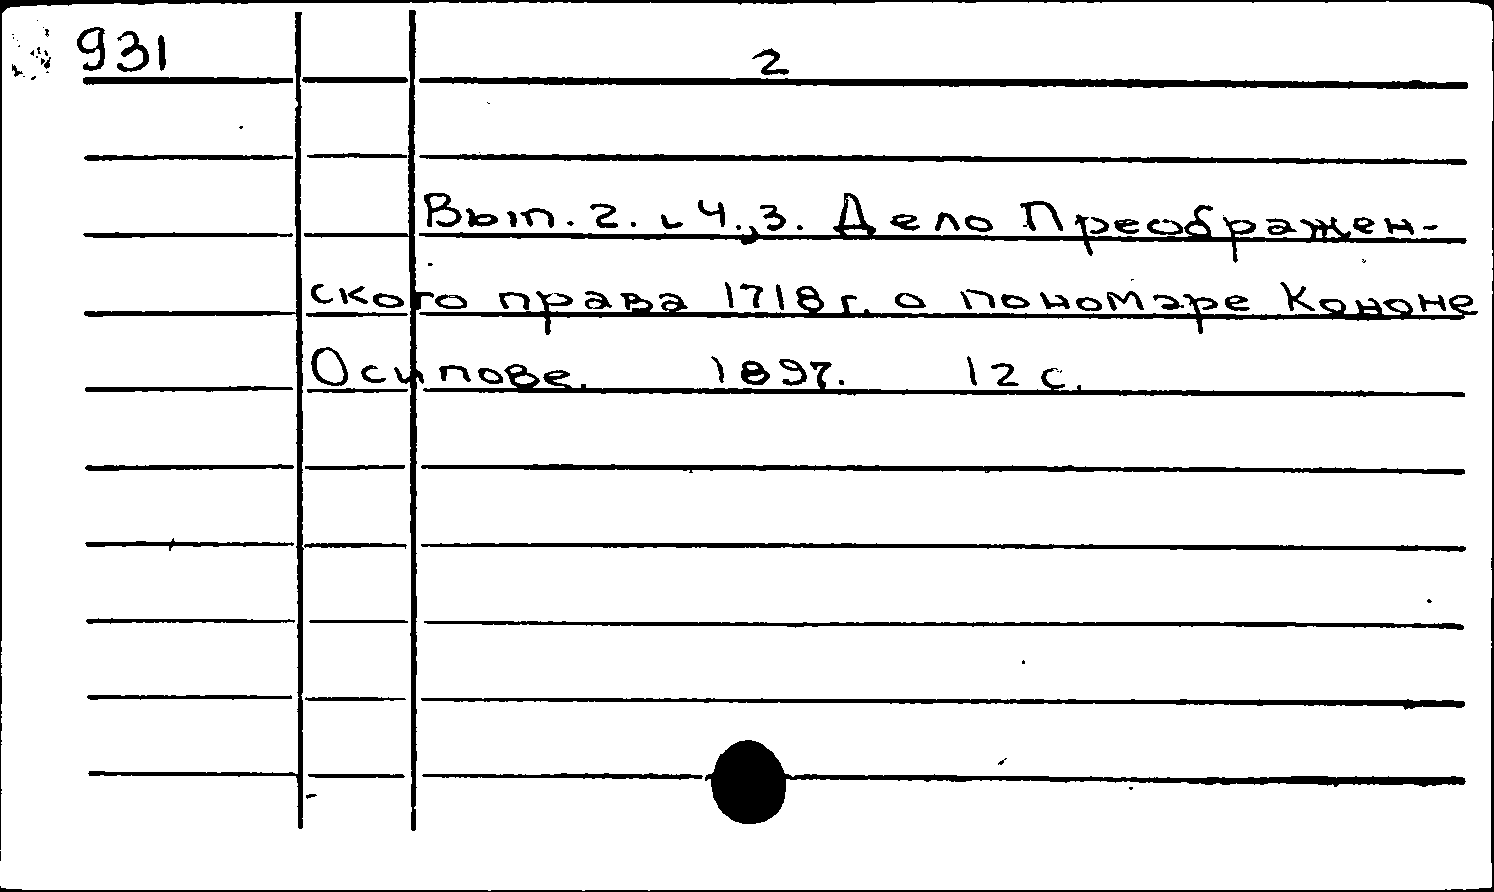 931 2
Вып. 2. ч. 3. Дело Преображен-
ского права 1718 г. о пономаре Кононе
Осипове. 1897. 12 с.